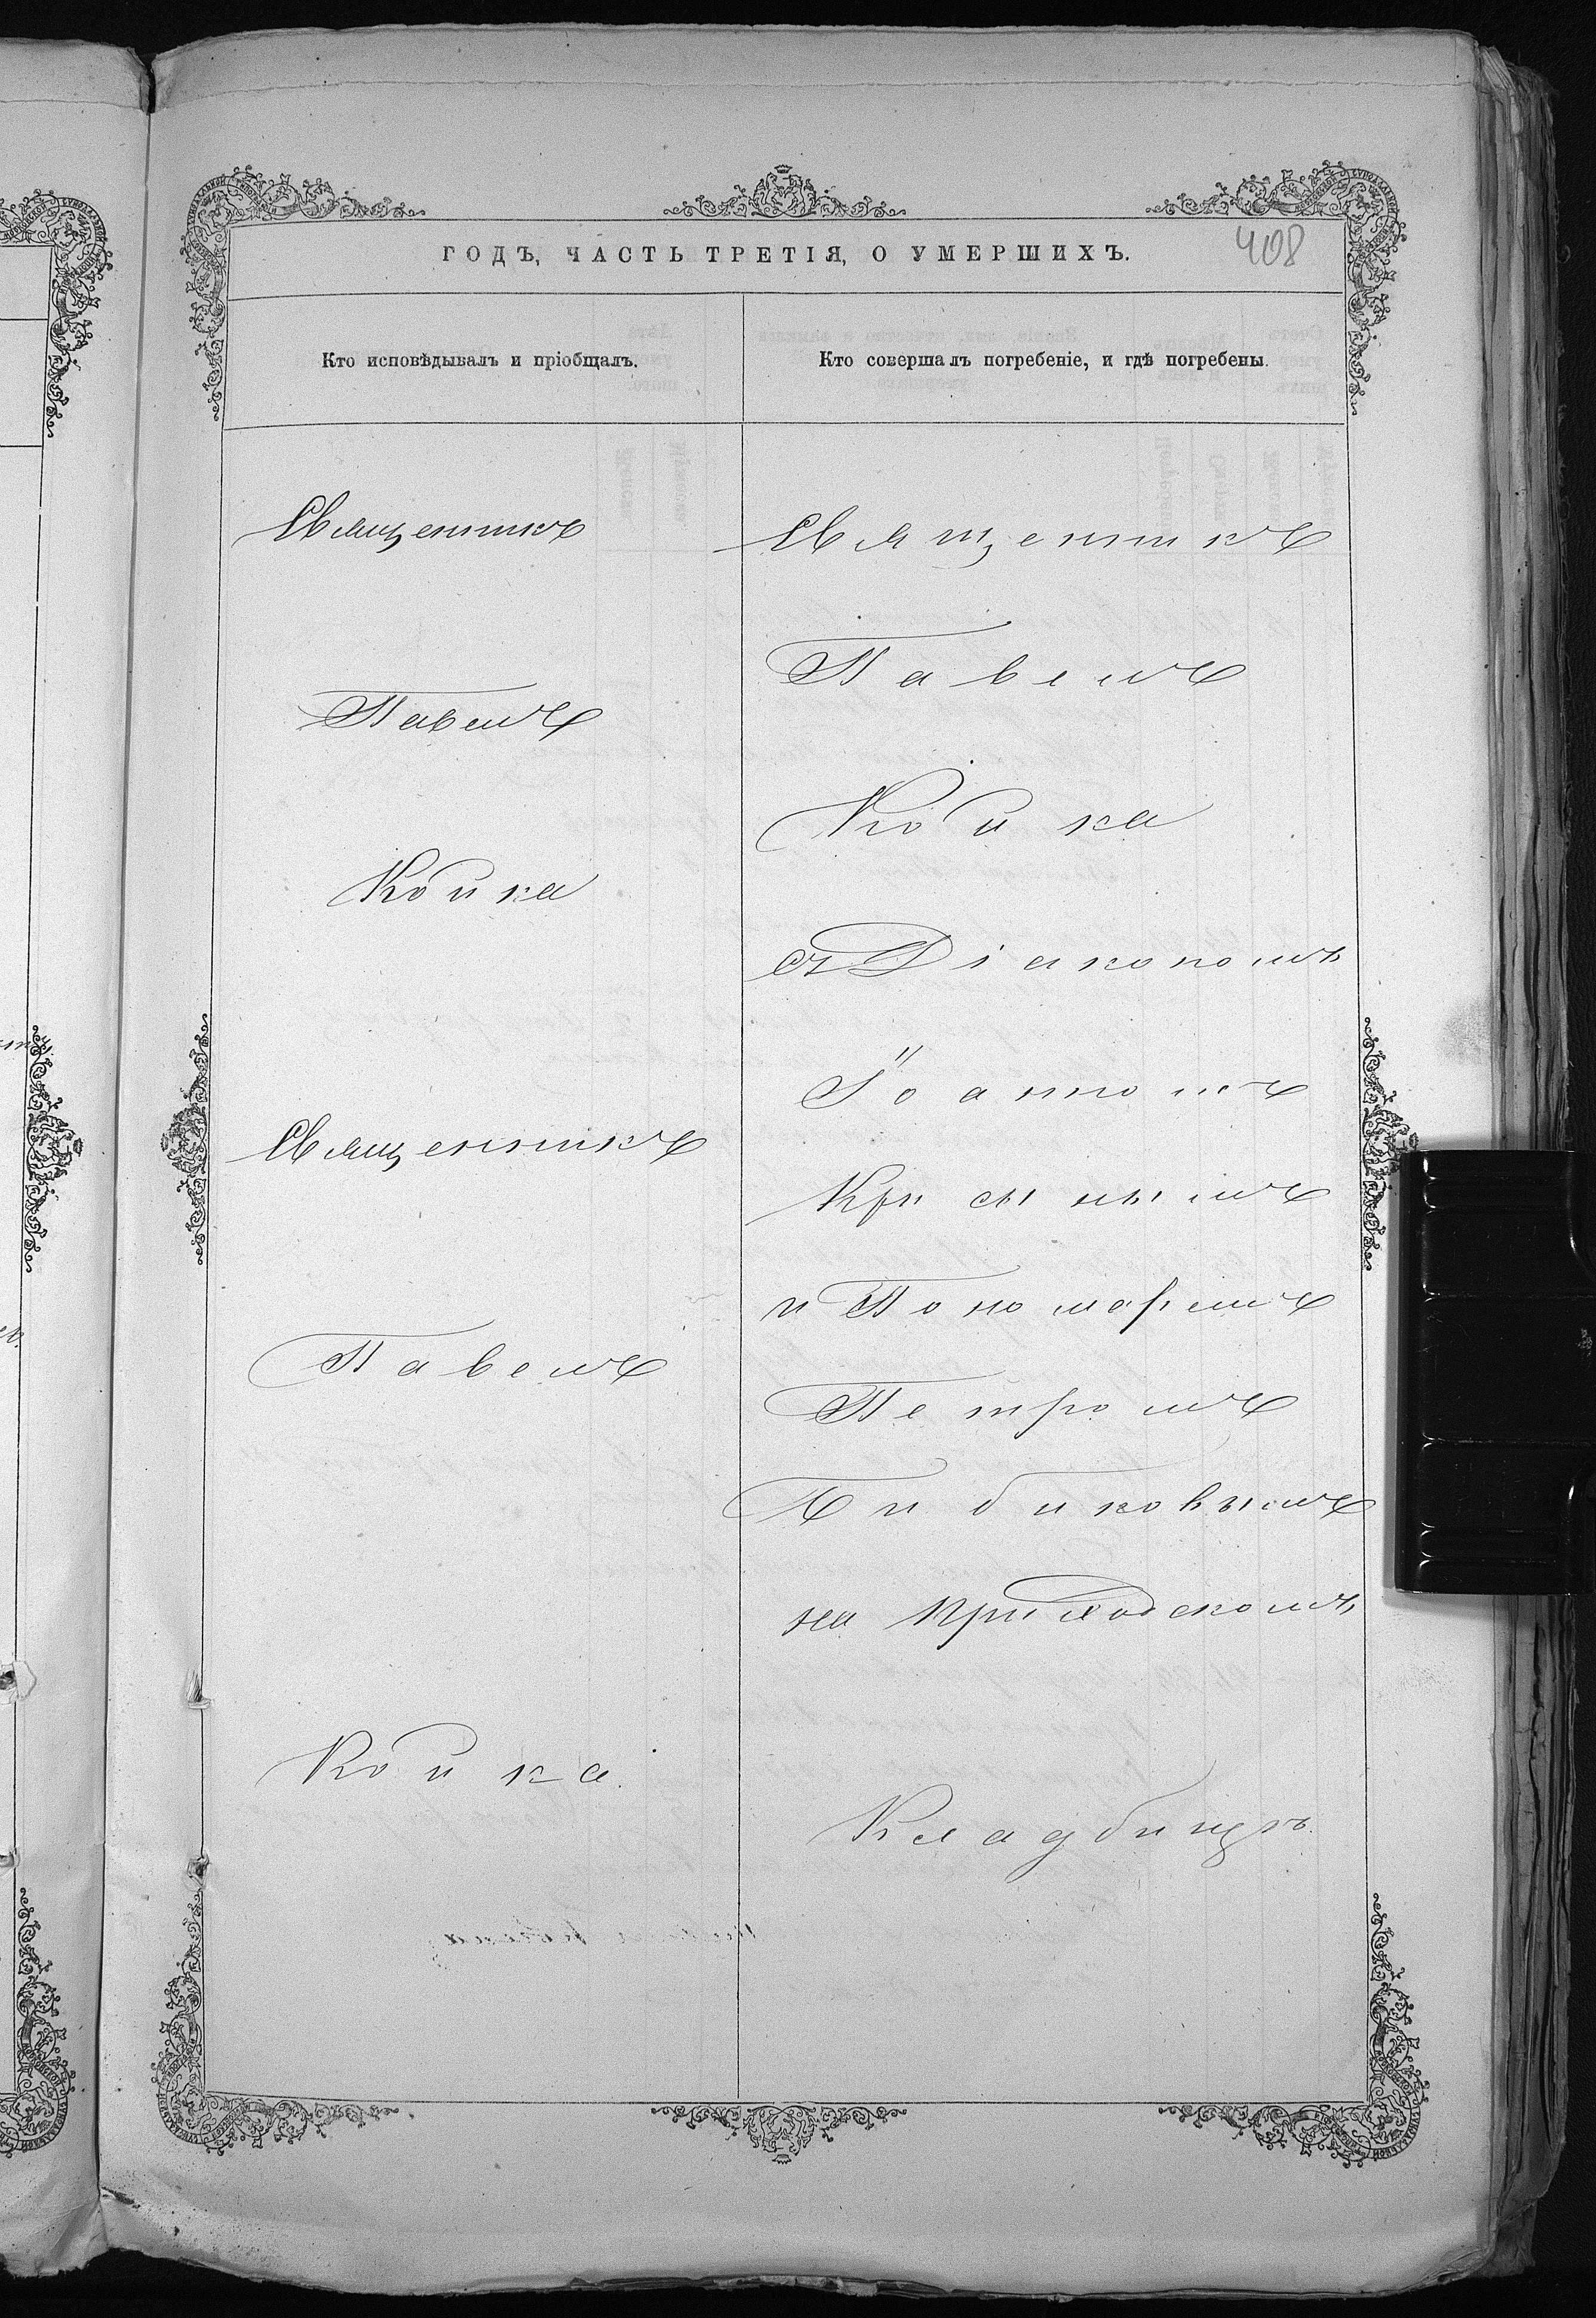 ГОДЪ, ЧАСТЬ ТРЕТІЯ, О УМЕРШИХЪ.
408
Кто исповѣдывалъ и пріобщалъ.
Кто совершалъ погребеніе, и гдѣ погребены.
Священникъ
Павелъ
Койка
Священникъ
Павелъ
Койка.
Священникъ
Павелъ
Койка
съ Діакономъ
Іоанномъ
и Пономаремъ
Петромъ
Бибиковымъ
на приходскомъ
Кладбищѣ.